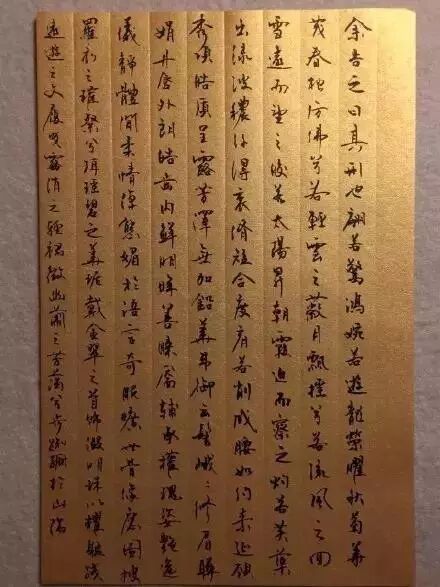 余告之曰其形也翩若驚鴻婉若遊龍榮曜秋菊華
茂春松仿佛兮若輕雲之蔽月飄颻兮若流風之回
雪遠而望之皎若太陽昇朝霞迫而察之灼若芙蕖
出淥波穠纤得衷脩短合度肩若削成腰如約素延頸
秀項皓質呈露芳澤無加鉛華弗御雲髻峨峨修眉聯
娟丹唇外朗皓齒內鮮明眸善睞靨輔承權瑰姿艷逸
儀靜體閒柔情綽態媚於語言奇服曠世骨像應圖披
羅衣之璀粲兮珥瑤碧之華琚戴金翠之首飾綴明珠以耀軀踐
遠遊之文履曳霧綃之輕裾微幽蘭之芳藹兮步踟躕於山隅